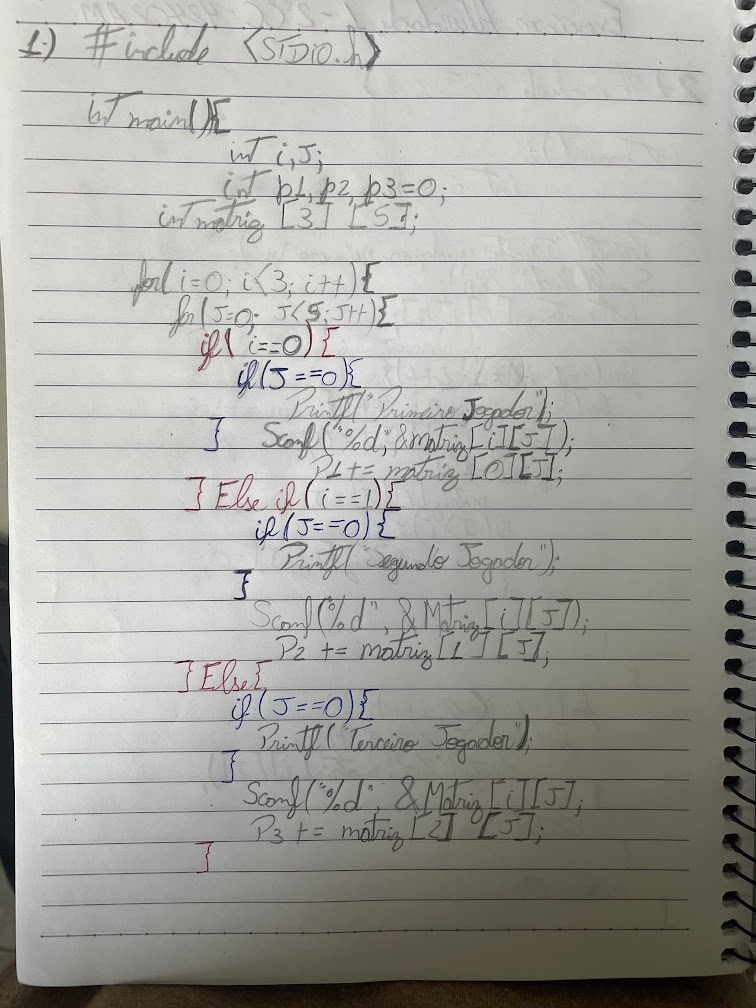 1.) #include <STDIO.h>
int main(){
int i,J;
int p1, p2, p3=0;
int matriz [3] [5];
for( i=0; i<3; i++){
for(J=0; J<5; J++){
if( i==0){
if(J==0){
Printf("Primeiro Jogador");
} Scanf("%d", &Matriz[i][J]);
P1 += matriz [0][J];
} Else if( i==1){
if(J==0){
Printf("Segundo Jogador");
}
Scanf("%d", &Matriz[i][J]);
P2 += matriz[1][J];
} Else{
if(J==0){
Printf("Terceiro Jogador");
}
Scanf("%d", &Matriz[i][J];
P3 += matriz[2] [J];
}